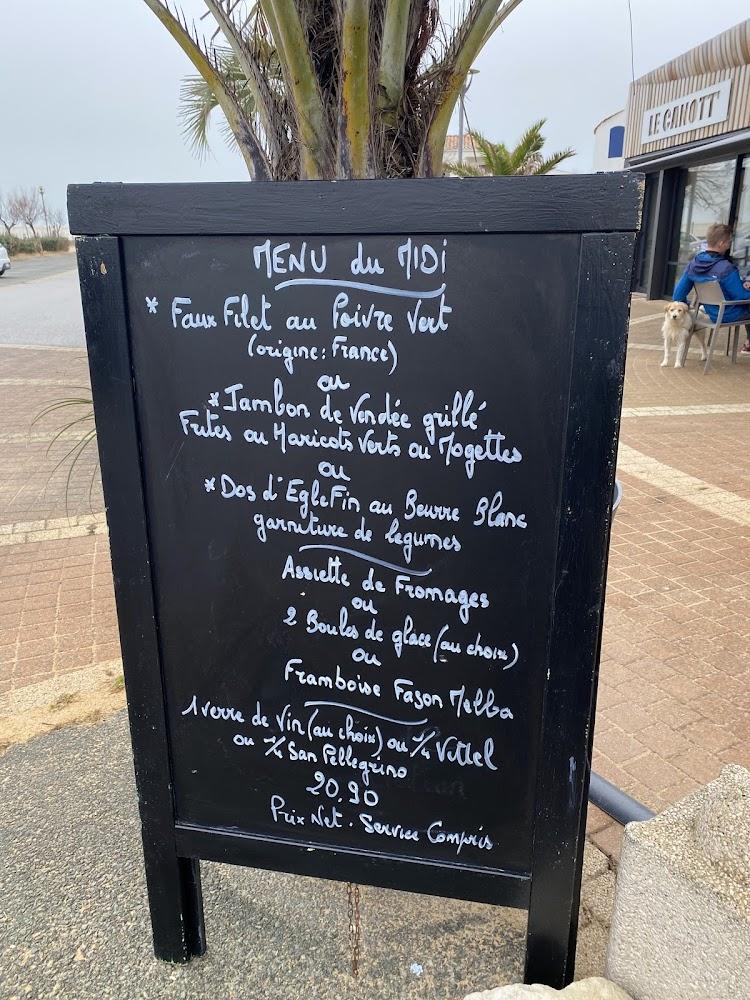 LE CANOTT
MENU du MIDI
* Faux Filet au Poivre Vert
(origine: France)
ou
* Jambon de Vendée grillé
Frites ou Haricots Verts ou Mogettes
ou
* Dos d'EgleFin au Beurre Blanc
garniture de legumes
Assiette de Fromages
ou
2 Boules de glace (au choix)
ou
Framboise Fason Melba
1 verre de Vin (au choix) ou 1/4 Vittel
ou 1/4 San Pellegrino
20,90
Prix Net. Service Compris